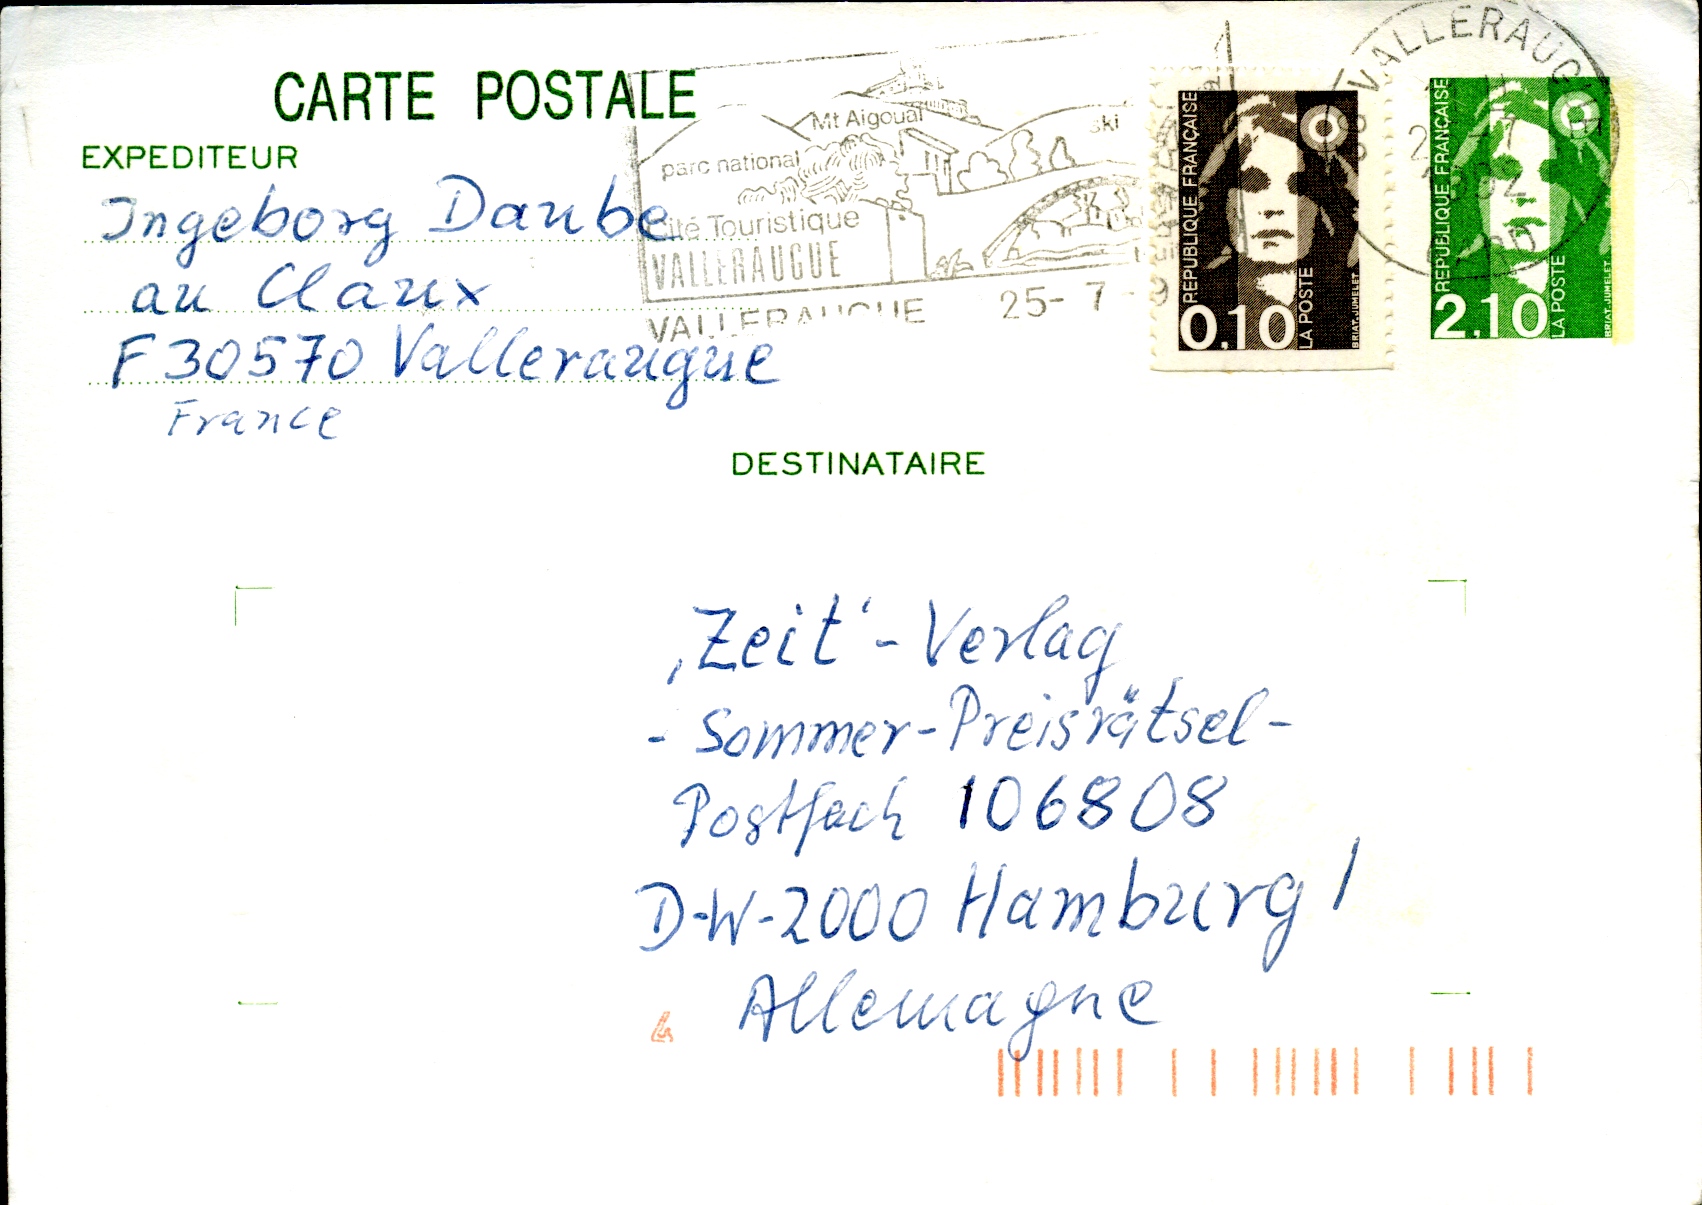 CARTE POSTALE
EXPEDITEUR
Ingeborg Daube
au Claux
F 30570 Valleraugue
France
Mt Aigoual
ski
parc national
Cité Touristique
VALLERAUGUE
VALLERAUGUE 25-7-9
REPUBLIQUE FRANÇAISE
0,10
LA POSTE
BRIAT-JUMELET
VALLERAUGUE
REPUBLIQUE FRANÇAISE
2,10
LA POSTE
BRIAT-JUMELET
DESTINATAIRE
‚Zeit‘-Verlag
- Sommer-Preisrätsel-
Postfach 106808
D-W-2000 Hamburg 1
Allemagne